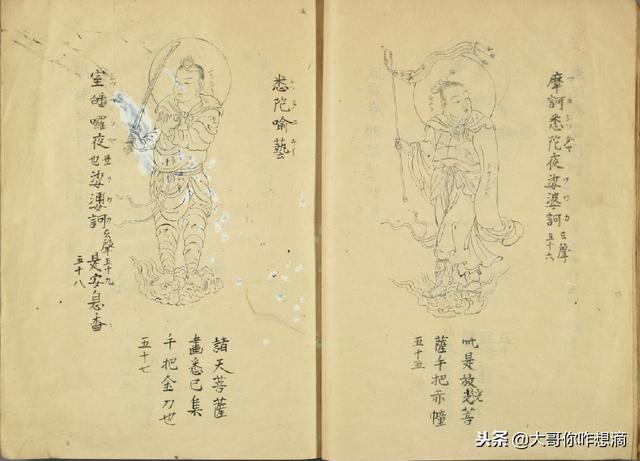 摩訶悉陀夜娑婆訶去聲五十六
此是放光菩
薩手把赤幢
五十五
悉陀喻藝
諸天菩薩
盡悉已集
手把金刀也
五十七
室皤囉夜也娑婆訶去聲五十九是安息香
五十八
头条 @大哥你咋想滴